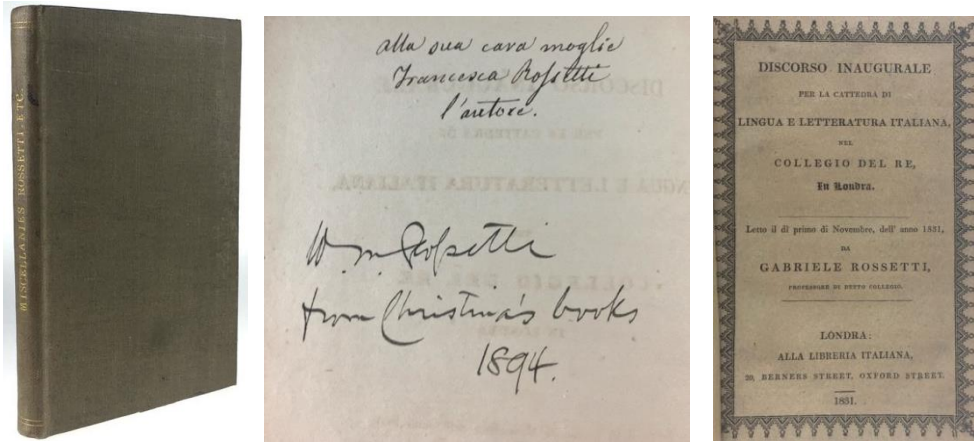 MISCELLANIES ROSSETTI, ETC.
alla sua cara moglie
Francesca Rossetti
l'autore.
W. M. Rossetti
from Christina's books
1894.
DISCORSO INAUGURALE
PER LA CATTEDRA DI
LINGUA E LETTERATURA ITALIANA,
NEL
COLLEGIO DEL RE,
In Londra.
Letto il dì primo di Novembre, dell' anno 1831,
DA
GABRIELE ROSSETTI,
PROFESSORE DI DETTO COLLEGIO.
LONDRA:
ALLA LIBRERIA ITALIANA,
20, BERNERS STREET, OXFORD STREET.
1831.